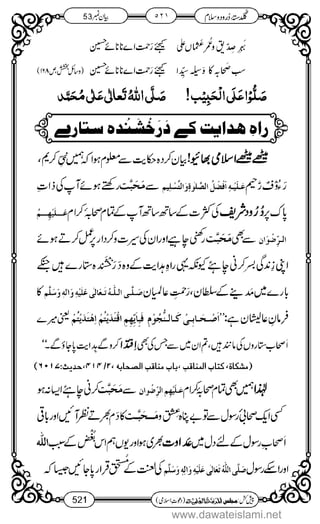 بیان نمبر 53
۵۲۱
گلدستۂ درود و سلام
بہرِ صدیق و عمر و عثماں علی
کیجئے رحمت اے نانائے حسین
سب صحابہ کا وسیلہ سیدا
کیجئے رحمت اے نانائے حسین
صَلُّوْا عَلَی الْحَبِیْب! صَلَّی اللّٰہُ تَعَالٰی عَلٰی مُحَمَّد
راہِ ھدایت کے دَرَخْشَنْدہ ستارے
میٹھے میٹھے اسلامی بھائیو! بیان کردہ حکایت سے معلوم ہوا کہ ہمیں نبیِ کریم،
رَءُوْفٌ رَّحیم عَلَیْہِ اَفْضَلُ الصَّلٰوۃِ وَالتَّسْلِیْم سے مَحَبَّت رکھتے ہوئے آپ کی ذات
پاک پر دُرُود شریف کی کثرت کے ساتھ ساتھ آپ کے تمام صحابۂ کرام عَلَیْہِمُ
الرِّضْوَان سے بھی مَحَبَّت رکھنی چاہیے اور ان کی سیرت و کردار پر عمل کرتے ہوئے
اپنی زندگی بسر کرنی چاہئے کیونکہ یہی راہِ ہدایت کے وہ دَرَخْشَنْدہ ستارے ہیں جنکے
بارے میں مدینے کے سلطان، رحمتِ عالمیان صَلَّی اللہُ تَعَالٰی عَلَیْہِ وَاٰلِہٖ وَسَلَّم کا
فرمانِ عالیشان ہے: ’’اَصْحَابِیْ کَالنُّجُوْمِ فَبِاَیِّہِمُ اقْتَدَیْتُمُ اہْتَدَیْتُمْ یعنی میرے
اَصحاب ستاروں کی مانند ہیں، تم ان میں سے جس کی بھی اقتدا کرو گے ہدایت پا جاؤ گے۔‘‘
(مشکاۃ، کتاب المناقب، باب مناقب الصحابہ، ۲/۴۱۴، حدیث: ۶۰۱۷)
لہٰذا ہمیں بھی تمام صحابۂ کرام عَلَیْہِمُ الرِّضْوَان سے مَحَبَّت کرنی چاہئے ایسا نہ ہو
کسی ایک صحابیِ رسول سے تو بے پناہ عشق و مَحَبَّت کا دم بھرتے نظر آئیں اور باقی
اَصحابِ رسول کے لئے دل میں عداوت بھری ہو اور یوں ہم اس بُغض کے سبب اللہ
اور اسکے رسول صَلَّی اللہُ تَعَالٰی عَلَیْہِ وَاٰلِہٖ وَسَلَّم کی لعنت کے مستحق قرار پا جائیں جیسا کہ
521
www.dawateislami.net